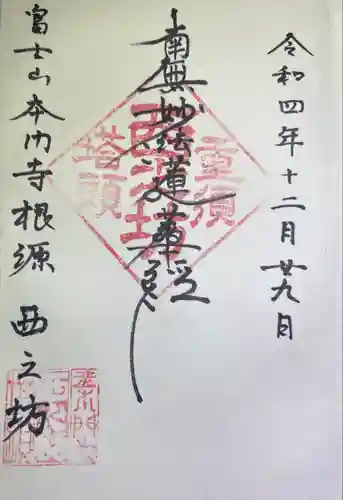 令和四年十二月廿九日
南無妙法蓮華経
重須
西之坊
塔頭
富士山本門寺根源
西之坊